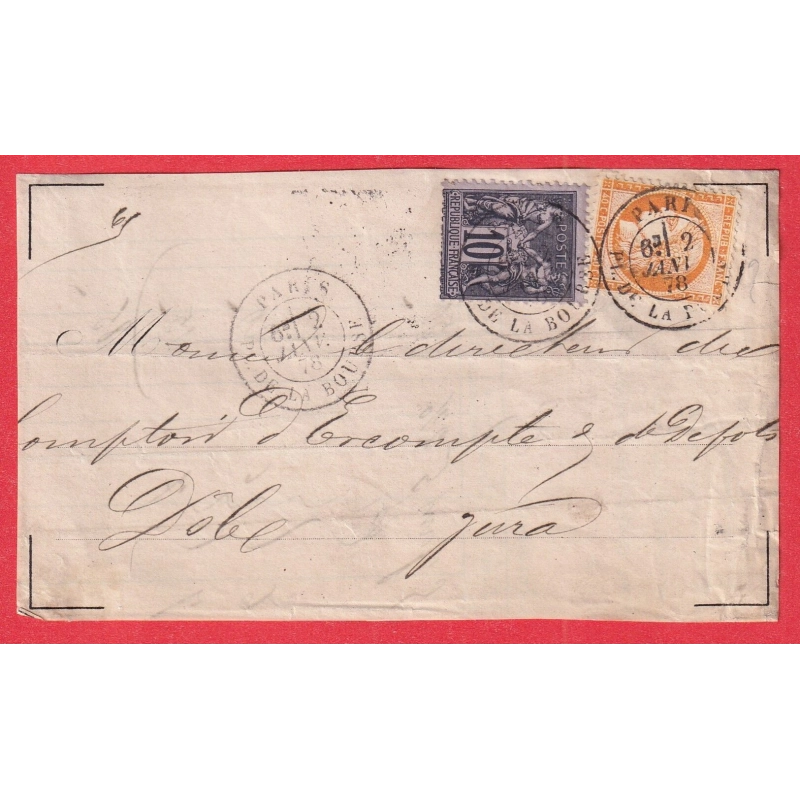 REPUBLIQUE FRANÇAISE
10
POSTES
DE LA BOURSE
PARIS
6E/ 2
JANV.
78
PL. DE LA BOURSE
PARIS
6E/ 2
JANV.
78
PL. DE LA BOURSE
Monsieur le directeur du
Comptoir d'Escompte & de Depots
Dôle Jura